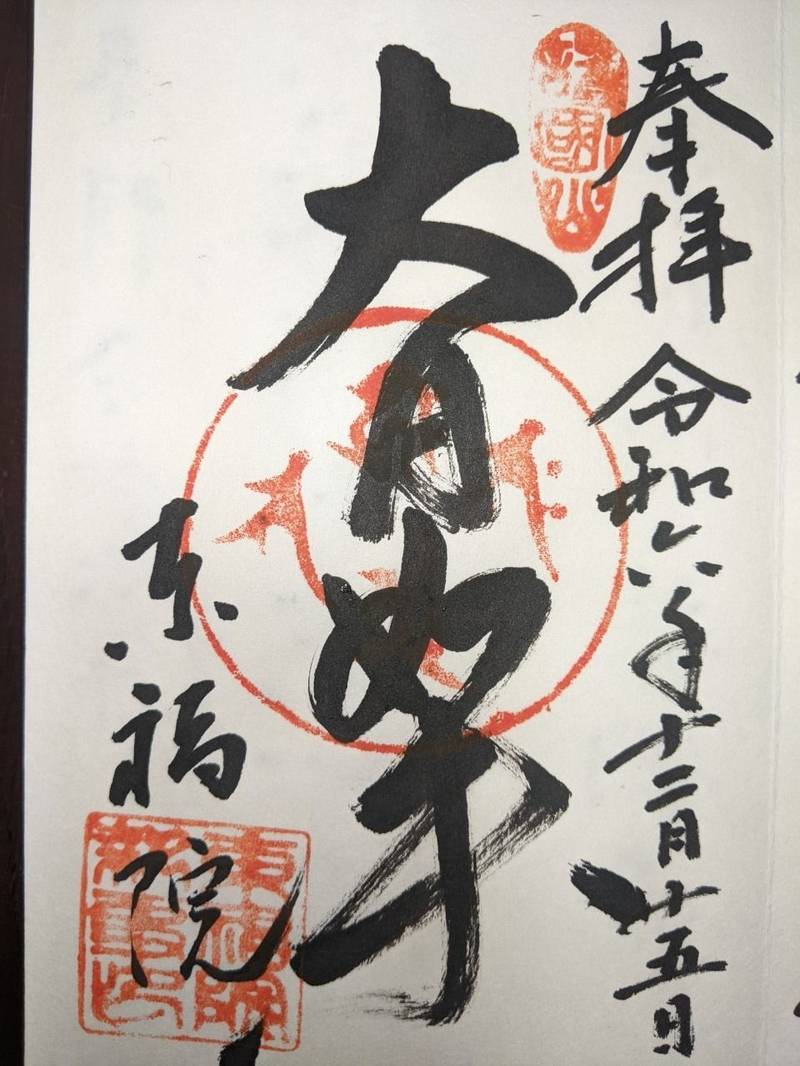 奉拝 令和六年十二月十五日
大日如来
東福院